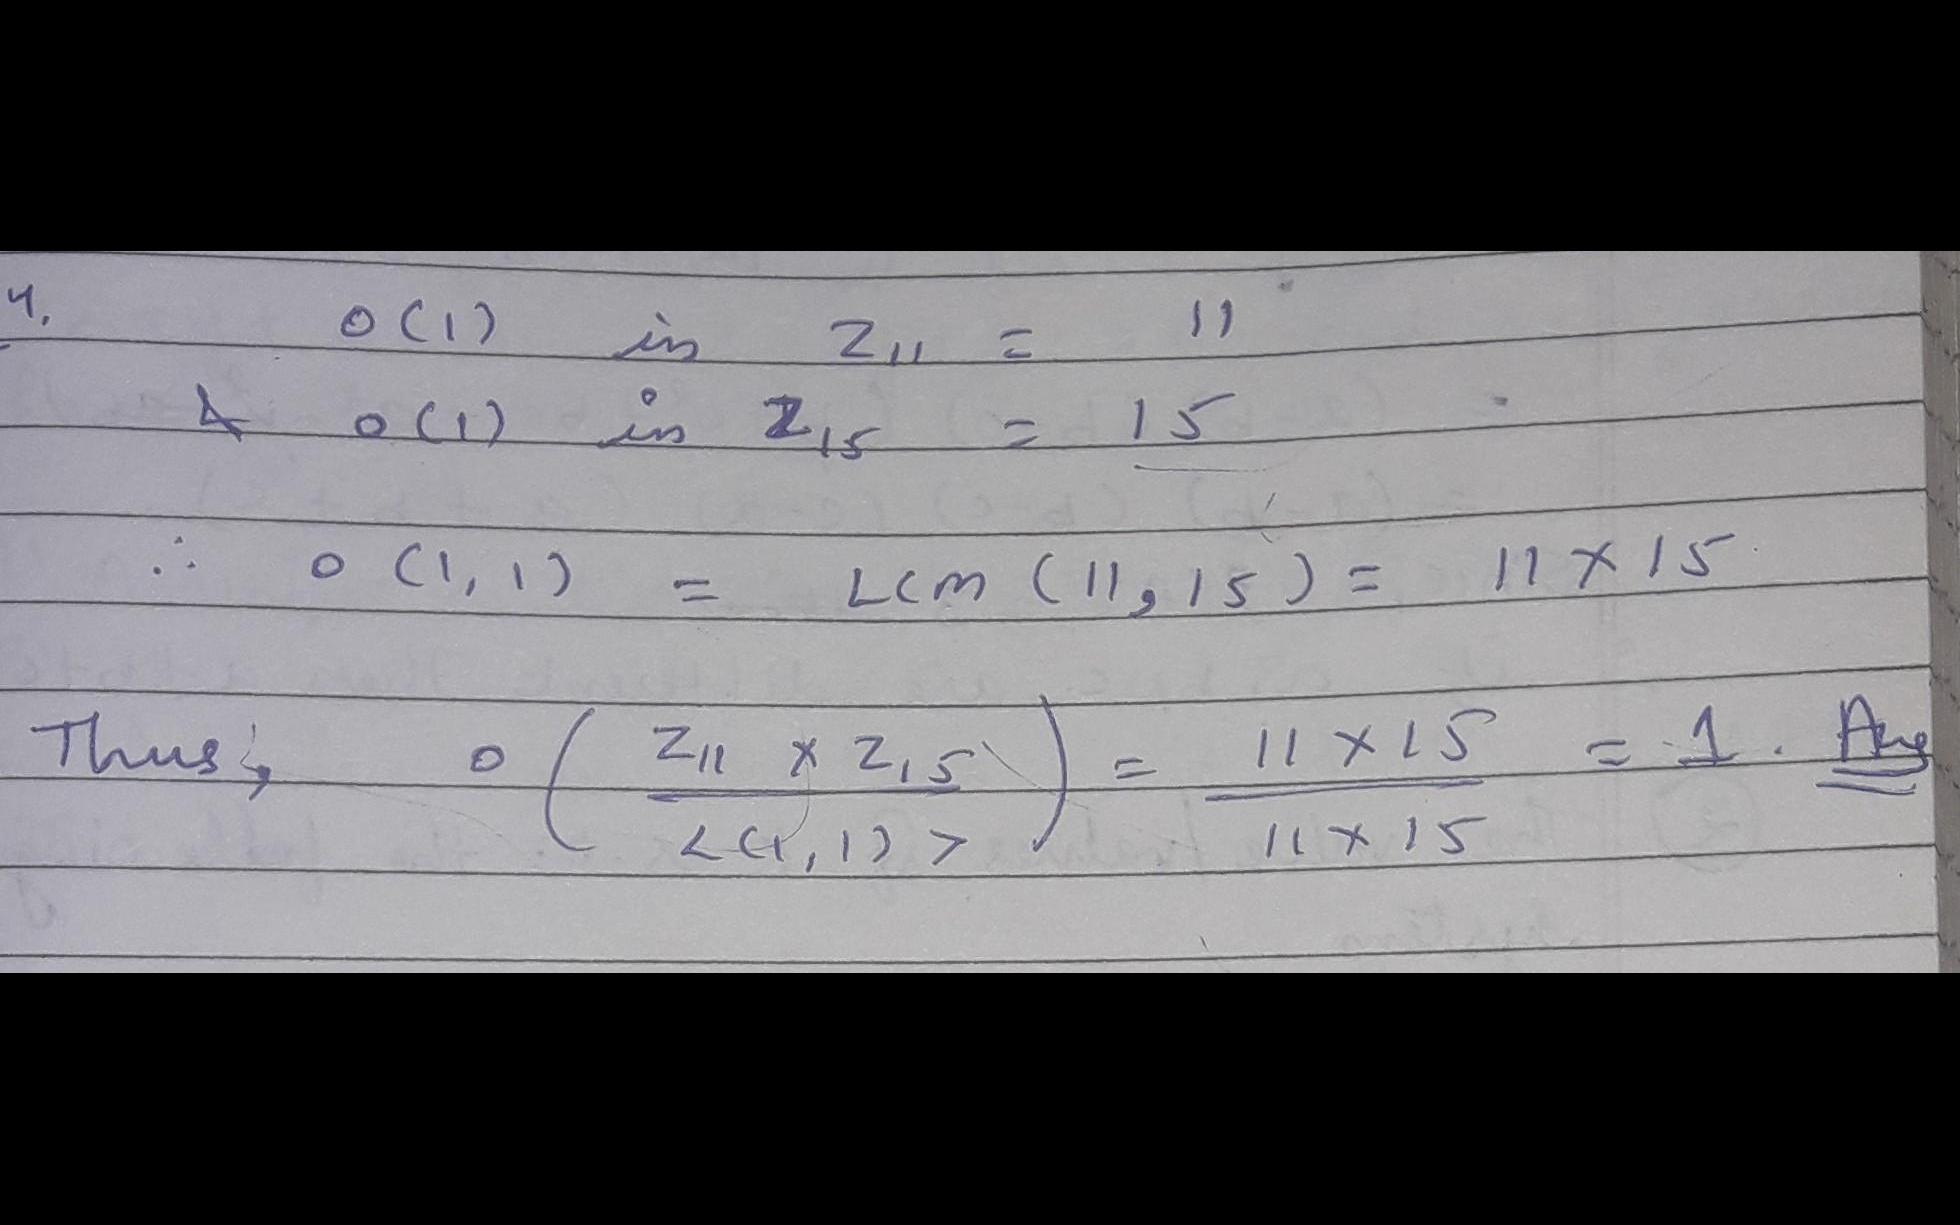 4. O(1) in Z₁₁ = 11
& O(1) in Z₁₅ = 15
∴ O(1,1) = LCM (11,15) = 11 × 15
Thus, O( Z₁₁ × Z₁₅ / <(1,1)> ) = 11 × 15 / 11 × 15 = 1. Ans